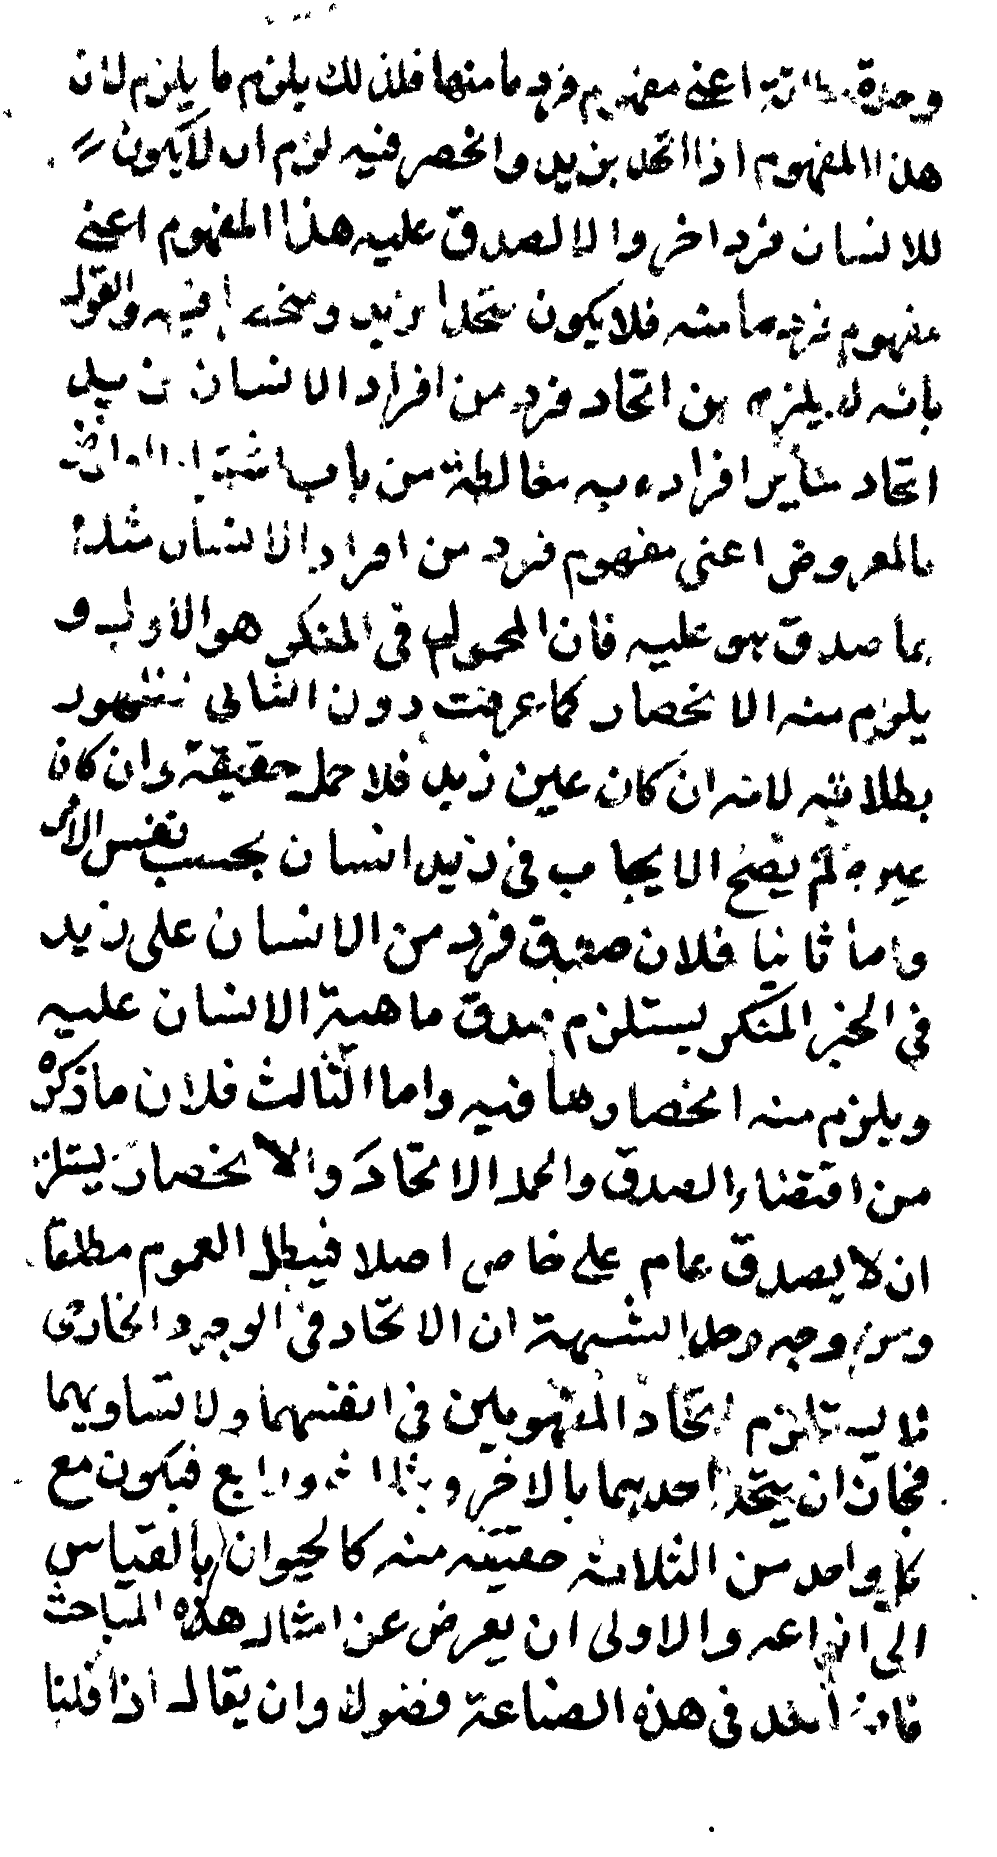 وحدة مطلقة اعني مفهوم فرد ما منها فلذلك يلزم ما يلزم لان
هذا المفهوم اذا اتحد بزيد وانحصر فيه لزم ان لا يكون
للانسان فرد اخر والا لصدق عليه هذا المفهوم اعني
مفهوم فرد ما منه فلا يكون متحدا بزيد ومنحصرا فيه والقول
بانه لا يلزم من اتحاد فرد من افراد الانسان بزيد
اتحاد سائر افراده به مغالطة من باب اشتباه العارض
بالمعروض اعني مفهوم فرد من افراد الانسان مثلا
بما صدق هو عليه فان المحمول في المنكر هو الاول و
يلزم منه الانحصار كما عرفت دون الثاني
بطلانه لانه ان كان عين زيد فلا حمل حقيقة وان كان
غيره لم يصح الايجاب في زيد انسان بحسب نفس الامر
واما ثانيا فلان صدق فرد من الانسان على زيد
في الخبر المنكر يستلزم صدق ماهية الانسان عليه
ويلزم منه انحصارها فيه واما الثالث فلان ما ذكره
من اقتضاء الصدق والحمل الاتحاد والانحصار يستلزم
ان لا يصدق عام على خاص اصلا فيبطل العموم مطلقا
ومن وجه وحل الشبهة ان الاتحاد في الوجود الخارجى
لا يستلزم اتحاد المفهومين في انفسهما ولا تساويهما
فجاز ان يتحد احدهما بالاخر وبثالث ورابع فيكون مع
كل واحد من الثلاثة حقيقة منه كالحيوان بالقياس
الى انواعه والاولى ان يعرض عن امثال هذه المباحث
فانه يعد في هذه الصناعة فضولا وان يقال اذا قلنا